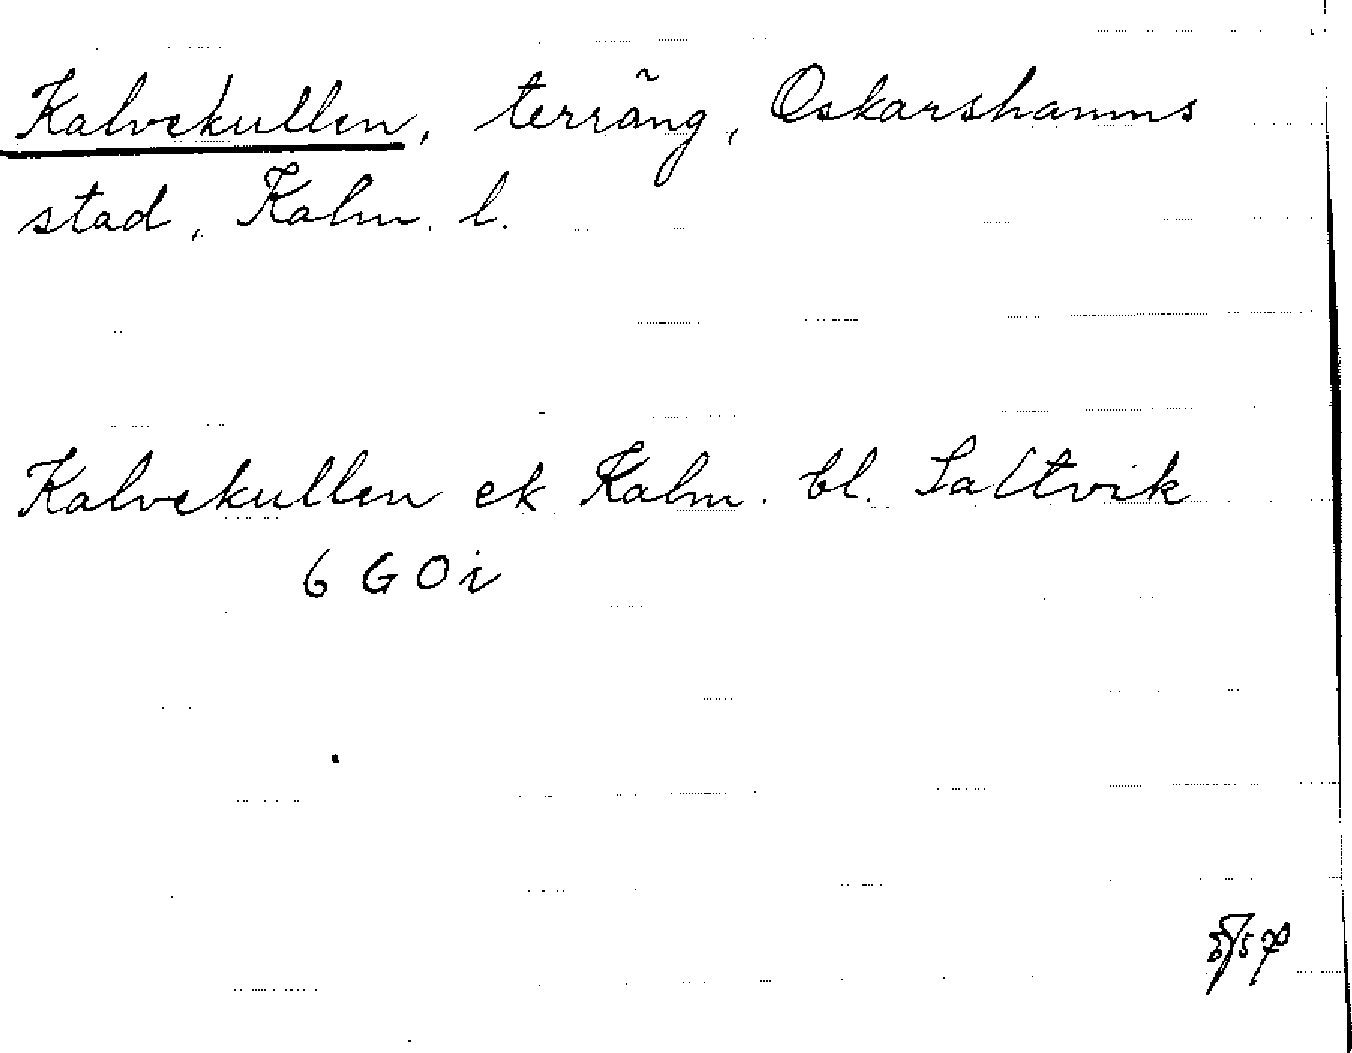 Kalvekullen, terräng, Oskarshamns
stad, Kalm. l.
Kalvekullen ek Kalm. bl. Saltvik
6 G O i